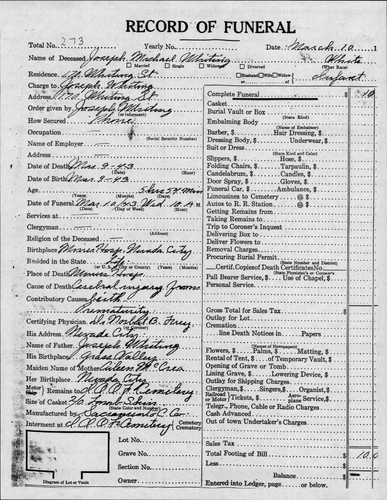 RECORD OF FUNERAL
Total No. 273 Yearly No. Date March 10
Name of Deceased Joseph Michael Whiting White
Married Single Widowed Divorced (What Race)
Residence Whiting St Husband Wife Widow of Infant
Charge to Joseph Whiting
Address Whiting St
Order given by Joseph Whiting
(or informant)
How Secured Phone
Occupation
(Social Security Number)
Name of Employer
Address
Date of Death Mar 9-43
Date of Birth Mar. 9-43
Age 5 hrs 54 min
(Years) (Months) (Days)
Date of Funeral Mar 10/43 Wed. 10 A.M
(Date) (Day of Week) (Hour)
Services at
Clergyman
Religion of the Deceased
Birthplace Miners Hosp. Nevada City
Resided in the State
(or U.S., City or County)
Place of Death Miners Hosp
Cause of Death Cerebral injury from
Contributory Causes birth
Prematurity
Certifying Physician Dr.
His Address Nevada City
Name of Father Joseph Whiting
His Birthplace Grass Valley
Maiden Name of Mother
Her Birthplace Nevada City
Motor Remains to I.O.O.F. Cemetery
Size of Casket
(State Color and Number)
Manufactured by Sacramento C. Co.
Interment at I.O.O.F. Cemetery Cemetery
Crematory
Lot No.
Grave No.
Section No.
Block No.
Owner
Diagram of Lot or Vault
Complete Funeral 10
Casket
Burial Vault or Box
(State Kind)
Embalming Body
(Name of Embalmer)
Barber, Hair Dressing,
Dressing Body, Underwear,
Suit or Dress
(State Kind and Color)
Slippers, Hose,
Folding Chairs, Tarpaulin,
Candelabrum, Candles,
Door Spray, Gloves,
Funeral Car, Ambulance,
Limousines to Cemetery @
Autos to R. R. Station @
Getting Remains
Taking Remains
Trip to Coroner's Inquest
Delivering Box to
Deliver Flowers
Removal Charges
(State Number and District)
Procuring Burial Permit
Certif. Copies of Death Certificates No.
(State Physician's or Coroner's)
Pall Bearer Service, Use of Chapel,
Personal Service
Gross Total for Sales Tax
Outlay for Lot
Cremation
line Death Notices in Papers
(Names of Newspapers)
Flowers, Palms, Matting,
Rental of Tent, of Temporary Vault,
Opening of Grave or Tomb
Lining Grave, Lowering Device,
Outlay for Shipping Charges
Clergyman, Singers, Organist,
Railroad or Motor Tickets, Aeroplane Service,
Telegr., Phone, Cable or Radio Charges
Cash Advanced
Out of town Undertaker's Charges
Sales Tax
Total Footing of Bill 10.0
Less
Balance
Entered into Ledger, page or below.